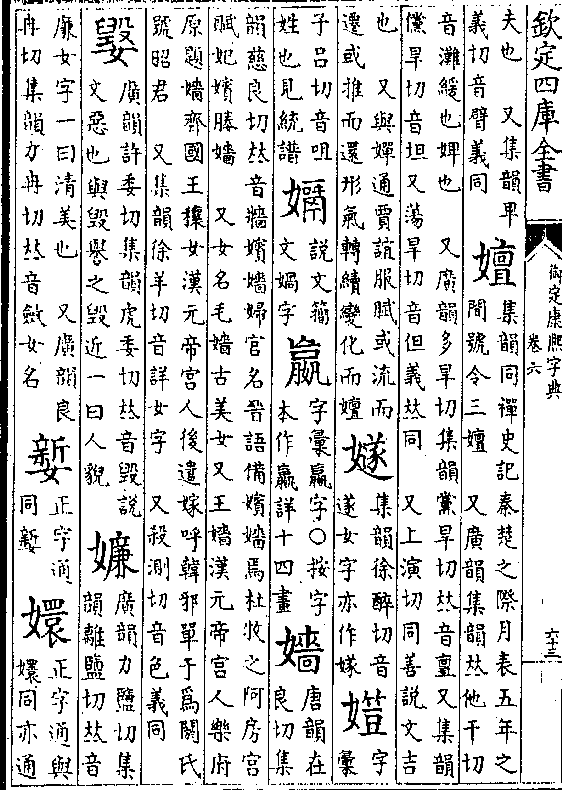 欽定四庫全書
御定康熙字典
卷六
六十三
夫也 又集韻畀
義切音臂義同
嬗
集韻同禪史記秦楚之際月表五年之
閒號令三嬗 又廣韻集韻𠀤他干切
音灘緩也婢也 又廣韻多旱切集韻黨旱切𠀤音亶又集韻
儻旱切音坦又蕩旱切音但義𠀤同 又上演切同善説文吉
也 又與嬋通賈誼服賦或流而
遷或推而還形氣轉續變化而嬗
嬘
集韻徐醉切音
遂女字亦作
字
彙
子呂切音咀
姓也見統譜
説文籀
文媧字
嬴
字彙嬴字○按字
本作嬴詳十四畫
嬙
唐韻在
良切集
韻慈良切𠀤音牆嬪嬙婦官名晉語備嬪嬙焉杜牧之阿房宮
賦妃嬪媵嬙 又女名毛嬙古美女又王嬙漢元帝宮人樂府
原題嬙齊國王穰女漢元帝宮人後遣嫁呼韓邪單于爲閼氏
號昭君 又集韻徐羊切音詳女字 又殺測切音色義同
廣韻許委切集韻虎委切𠀤音毁説
文惡也與毁譽之毁近一曰人貌
嬚
廣韻力鹽切集
韻離鹽切𠀤音
廉女字一曰清美也 又廣韻良
冉切集韻力冉切𠀤音斂女名
正字通
同
嬛
正字通與
嬛同亦通